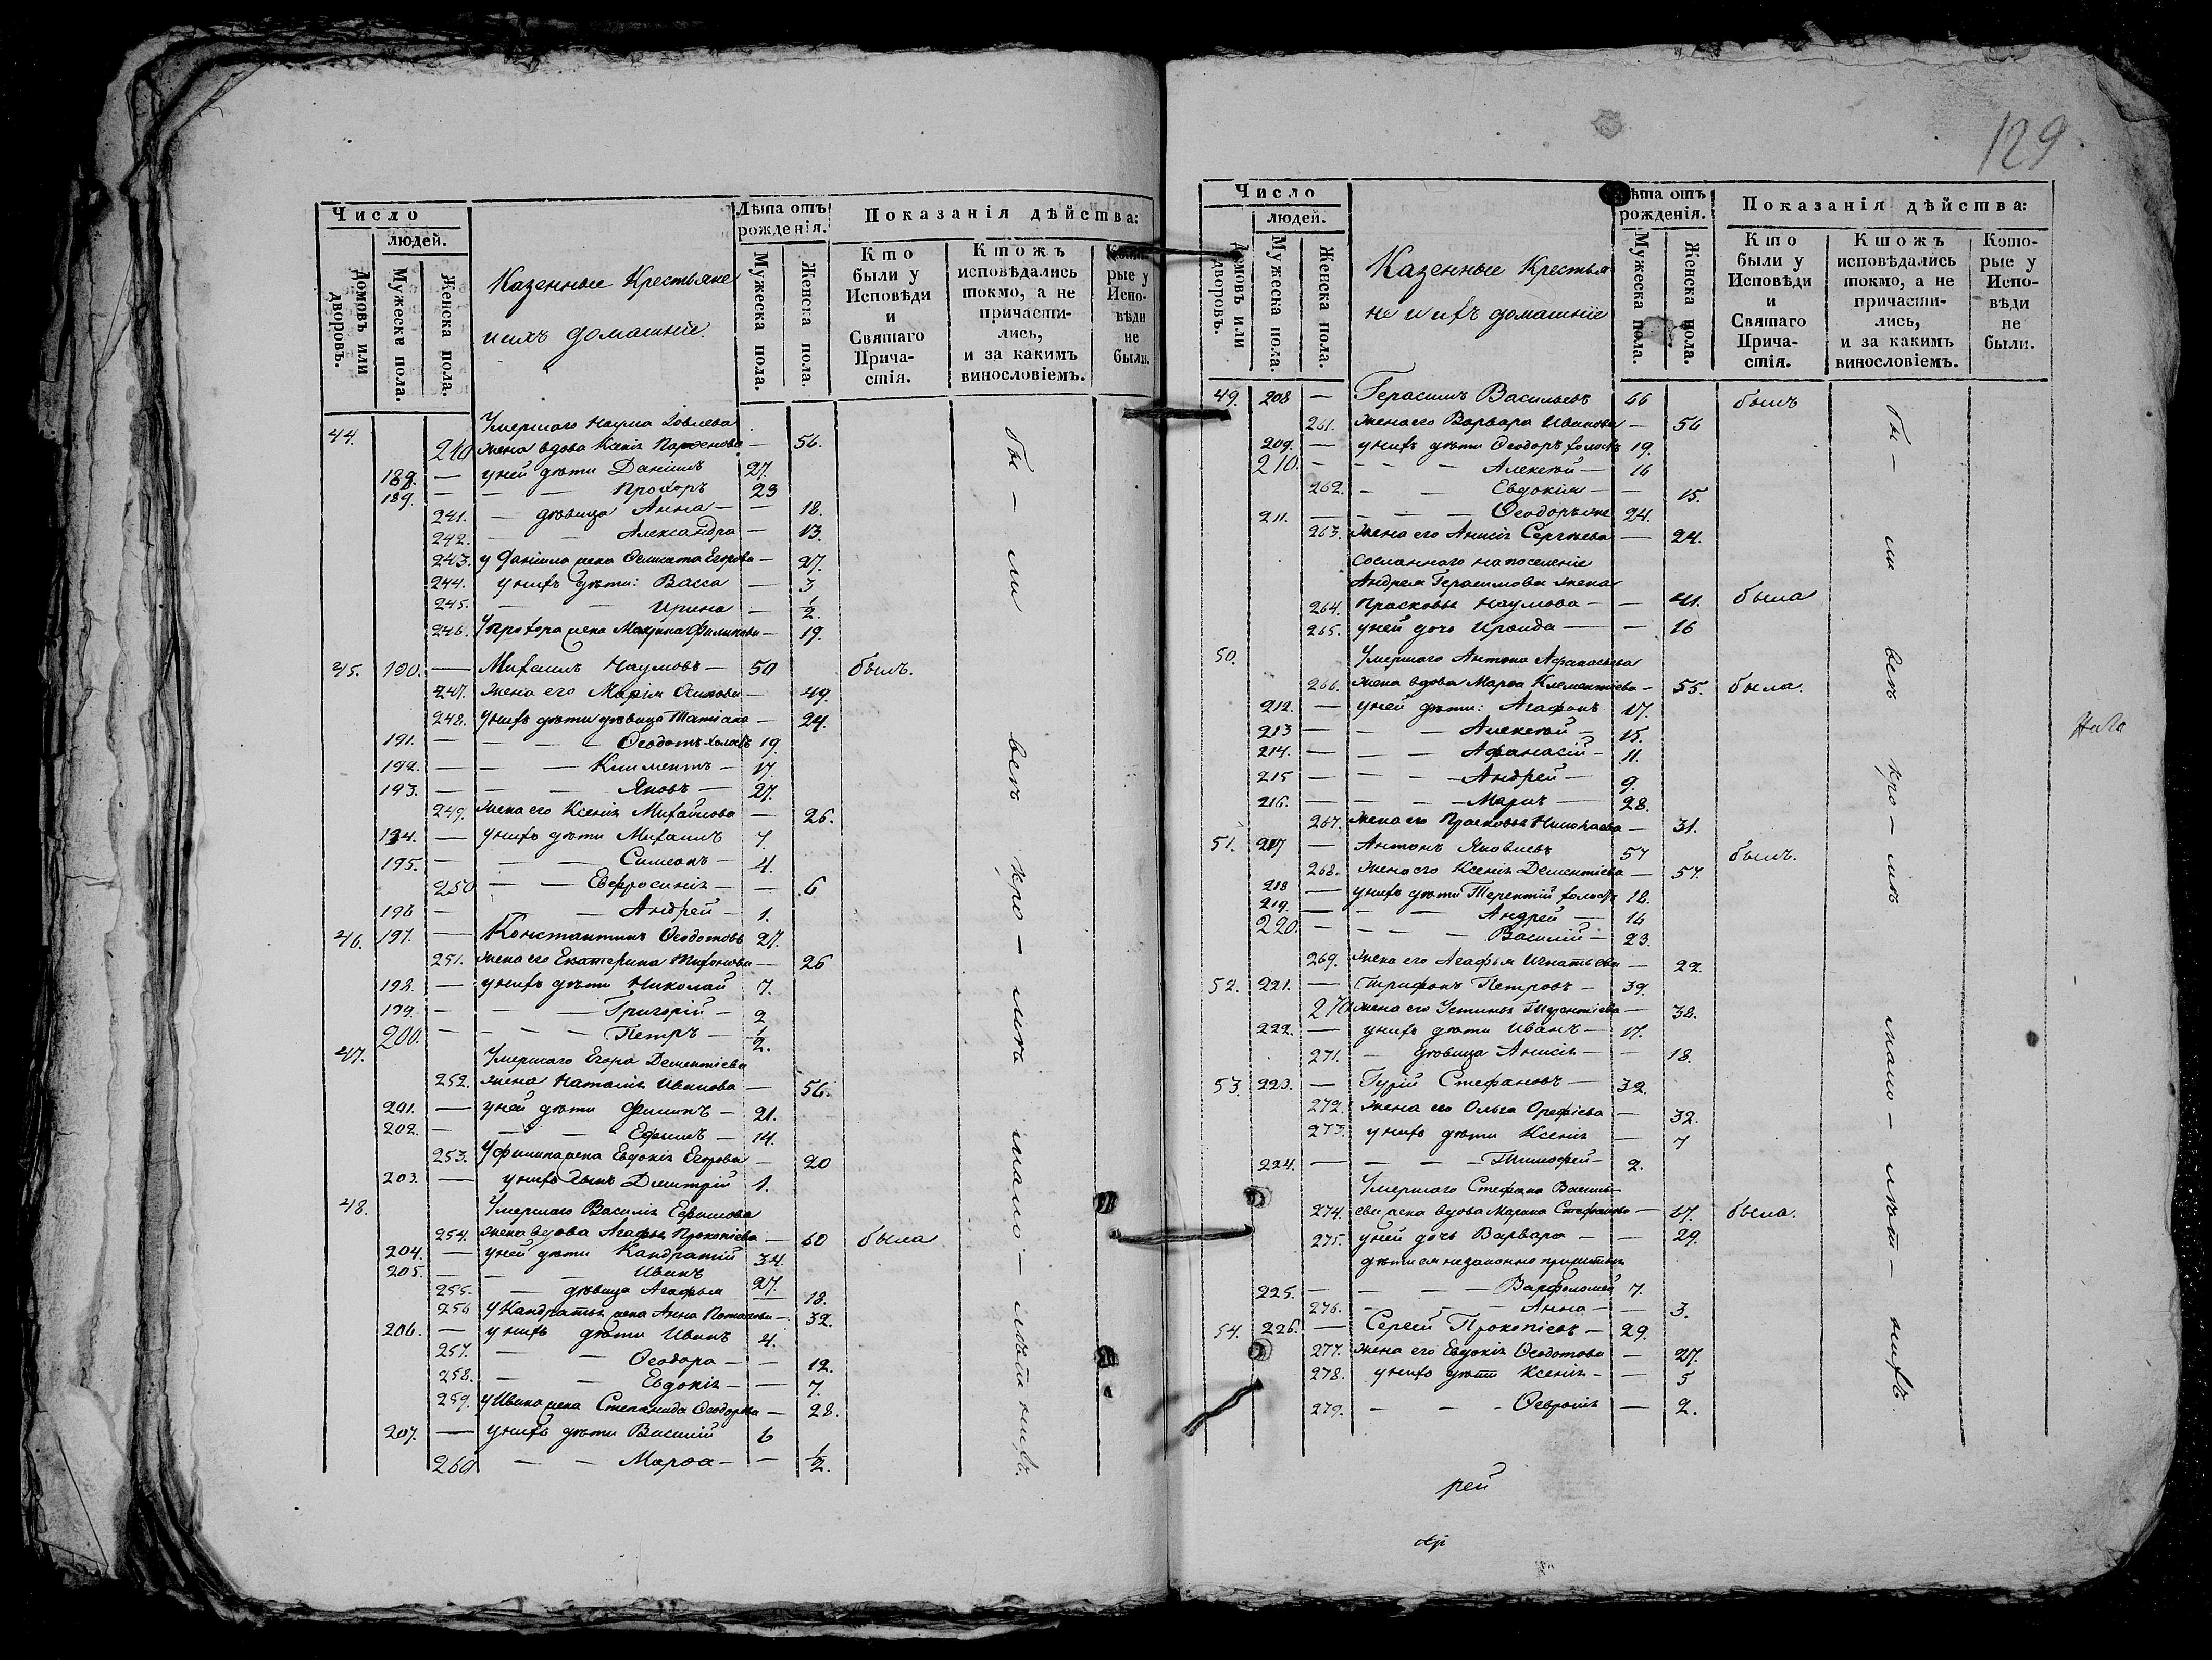 Число
людей.
Домовъ или дворовъ.
Мужеска пола.
Женска пола.
Казенные Крестьяне
и ихъ домашніе.
Лѣта отъ рожденія.
Мужеска пола.
Женска пола.
Показанія дѣйства:
Кто были у Исповѣди и Святаго Причастія.
Ктожъ исповѣдались токмо, а не причастились, и за какимъ винословіемъ.
Которые у Исповѣди не были.
44. Умершаго Наума Іовлева
240 жена вдова Ксенія Парѳенова — 56.
188. — у ней дѣти Даніилъ 27.
189. — — — Прохоръ 23
241. — дѣвица Анна — — 18.
242. — — Александра — 13.
243. у Даніила жена Ѳелисата Егорова — 27.
244. у нихъ дѣти: Васса — 3
245. — — Ирина — 1/2.
246. У Прохора жена Макрина Филипова — 19.
45. 190. — Михаилъ Наумовъ — 50 былъ.
247. жена его Марія Осипова — 49.
248. У нихъ дѣти дѣвица Татіана — 24.
191. — — — — Ѳеодотъ холостъ 19.
192. — — — Климентъ — 17.
193. — — — Яковъ — 27.
249. жена его Ксенія Михайлова — 26.
194. — у нихъ дѣти Михаилъ 7.
195. — — — Симеонъ — 4.
250 — — Евфросинія — — 6
196 — — Андрей — 1.
46. 197. — Константинъ Ѳеодотовъ 27.
251. жена его Екатерина Тихонова — 26
198. — у нихъ дѣти Николай 7.
199. — — — Григорій — 2
200. — — — — Петръ — 1/2.
47. Умершаго Егора Дементіева
252. жена Наталія Иванова — 56.
201. — у ней дѣти Филипъ — 21.
202. — — — Ефимъ — 14.
253. У Филипа жена Евдокія Егорова — 20
203. — у нихъ сынъ Димитрій 1.
48. Умершаго Василія Ефимова
254. жена вдова Агафья Прокопіева — 60 была
204. — у ней дѣти Кандратій 34.
205. — — — Иванъ 27.
255. — дѣвица Агафья — 18.
256 У Кандратья жена Анна Потапова — 32.
206. — у нихъ дѣти Иванъ 4.
257. — — Ѳеодора — — 12.
258. — — Евдокія — — 7.
259. У Ивана жена Степанида Ѳеодорова — 28.
207. — у нихъ дѣти Василій 6
260 — — Марѳа — — 1/2.
бы — ли всѣ кро — мѣ мало — лѣтнихъ.
129
Число
людей.
Домовъ или дворовъ.
Мужеска пола.
Женска пола.
Казенные Крестья
не и ихъ домашніе
Лѣта отъ рожденія.
Мужеска пола.
Женска пола.
Показанія дѣйства:
Кто были у Исповѣди и Святаго Причастія.
Ктожъ исповѣдались токмо, а не причастились, и за какимъ винословіемъ.
Которые у Исповѣди не были.
49. 208 — Герасимъ Васильевъ 66 былъ
261. жена его Варвара Иванова — 56
209. — у нихъ дѣти Ѳеодоръ холостъ 19.
210. — — — — Алексѣй — 16
262. — — Евдокія — — 15.
211. — — — — Ѳеодоръ же 24.
263. жена его Анисія Сергѣева — 24.
Сосланнаго на поселеніе
Андрея Герасимова жена
264. Прасковья Наумова — — 41. была
265. у ней дочь Ираида — — 16
50. Умершаго Антона Афанасьева
266. жена вдова Марѳа Клементіева — 55. была.
212. — у ней дѣти: Агафонъ 17.
213 — — — Алексѣй — 15.
214. — — — Афанасій — 11.
215 — — — — Андрей — 9.
216. — — — — Маркъ — 28.
267. жена его Прасковья Николаева — 31.
51. 217 — Антонъ Яковлевъ 57 былъ.
268. жена его Ксенія Дементіева — 57.
218 — у нихъ дѣти Терентій холостъ 18.
219. — — — Андрей — 16
220. — — — — Василій — 23.
269. жена его Агафья Игнатьева — 22.
52. 221. — Трифонъ Петровъ — 39.
270 жена его Устинья Терентіева — 38.
222. — у нихъ дѣти Иванъ — 17.
271. — дѣвица Анисія — — 18.
53. 223. — Гурій Стефановъ — 32.
272. жена его Ольга Орефіева — 32.
273. у нихъ дѣти Ксенія — 7
224. — — — — Тимофей — 2.
Умершаго Стефана Василь
274. ева жена вдова Марина Стефанова — 67. была.
275. у ней дочь Варвара — — 29.
дѣти ея незаконно прижитые
225. — — — — Варфоломей 7.
276. — — — Анна — — 3.
54. 226. — Сергей Прокопіевъ — 29.
277. жена его Евдокія Ѳеодотова — 27.
278. у нихъ дѣти Ксенія — — 5
279. — — — Ѳевронія — 2.
бы — ли всѣ кро — мѣ мало — лѣт — нихъ.
рей